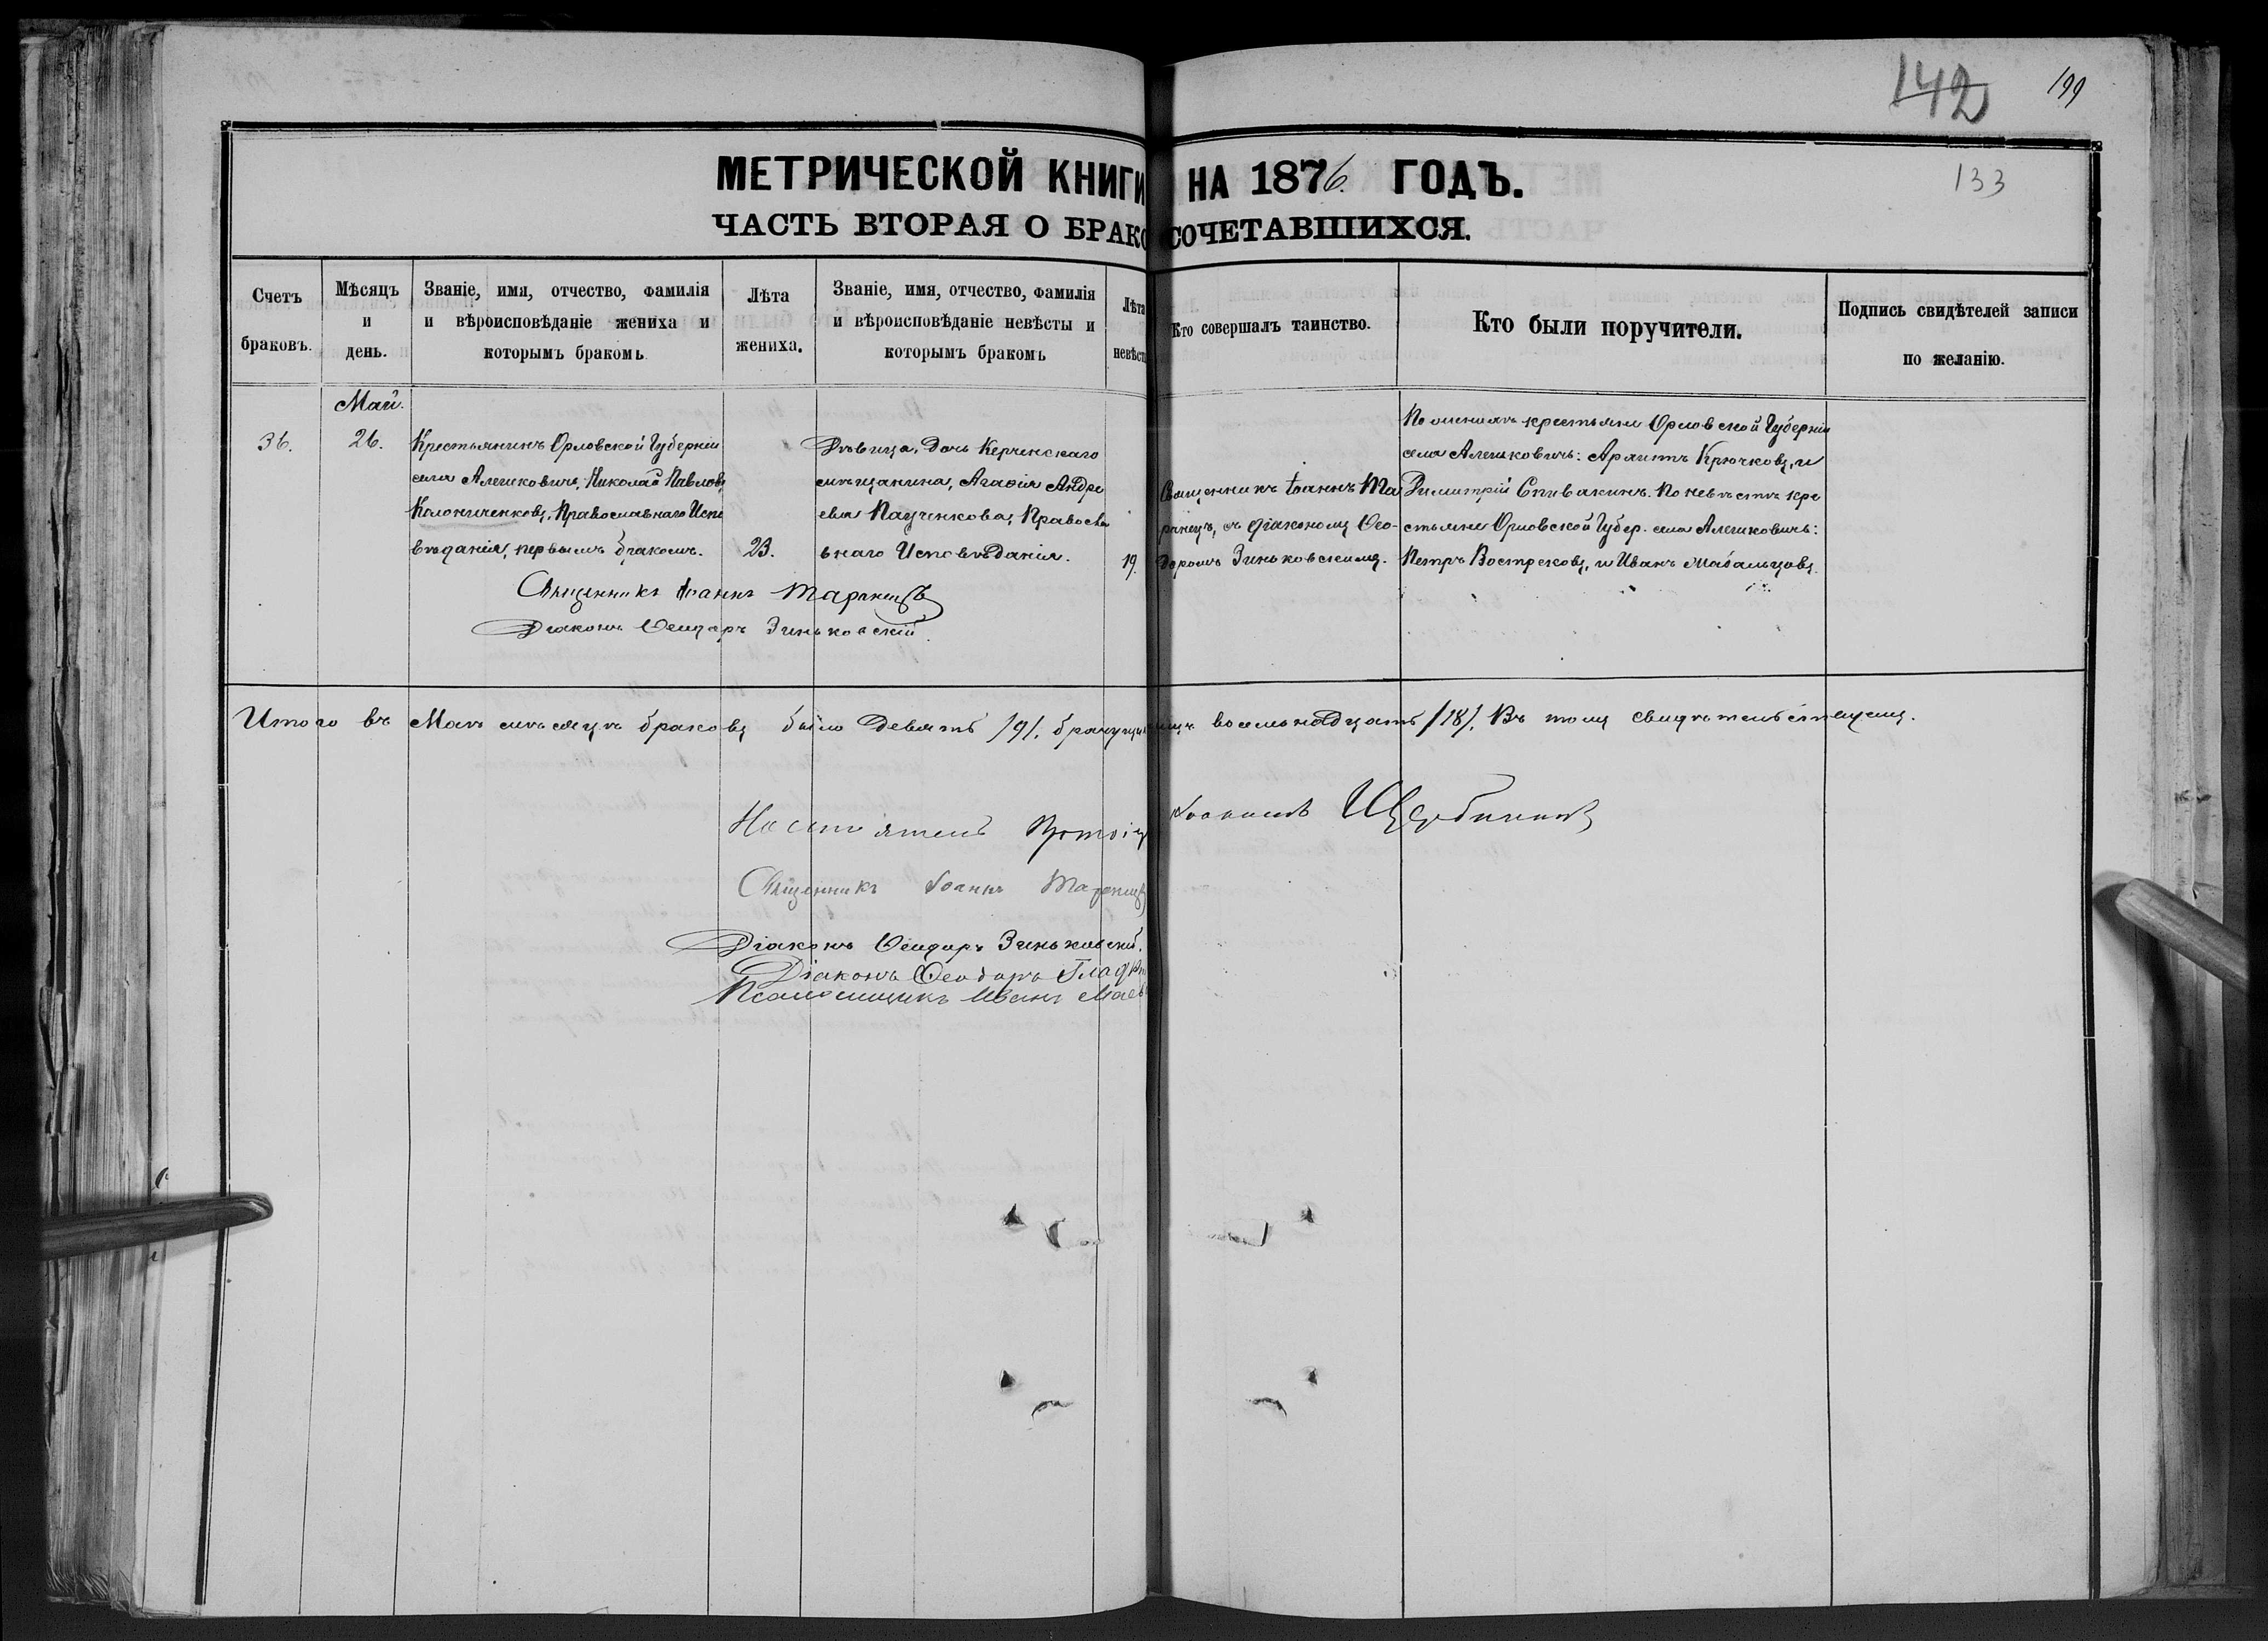 142
199
133
МЕТРИЧЕСКОЙ КНИГИ НА 1876 ГОДЪ.
ЧАСТЬ ВТОРАЯ О БРАКОСОЧЕТАВШИХСЯ.
Счетъ браковъ.
Мѣсяцъ и день.
Званіе, имя, отчество, фамилія
и вѣроисповѣданіе жениха и
которымъ бракомъ
Лѣта жениха.
Званіе, имя, отчество, фамилія
и вѣроисповѣданіе невѣсты и
которымъ бракомъ
Лѣта невѣст
Кто совершалъ таинство.
Кто были поручители.
Подпись свидѣтелей записи
по желанію.
36.
Май.
26.
Крестьянинъ Орловской Губерніи
села Алешковичъ, Николай Павловъ
Православнаго Испо
вѣданія, первымъ бракомъ.
23.
Дѣвица, дочь Керченскаго
мѣщанина, Агафія Андре
ева Пащенкова, Правосла
внаго Исповѣданія.
19.
Священникъ Іоаннъ Та
ранецъ, съ діакономъ Ѳео-
доромъ Зиньковскимъ.
По женихѣ крестьяне Орловской Губерніи
села Алешковичъ: Крючковъ, и
Димитрій Спивакинъ. По невѣстѣ кре
стьяне Орловской Губер. села Алешковичъ:
Петръ Востреховъ, и Иванъ
Священникъ Іоаннъ Таранецъ
Діаконъ Ѳеодоръ Зиньковскій.
Итого въ Маѣ мѣсяцѣ браковъ было девять /9/. восемнадцать /18/. Въ томъ
Настоятель Протоіер Щербининъ
Священникъ Іоаннъ Таранецъ
Діаконъ Ѳеодоръ Зиньковскій.
Діаконъ Ѳеодоръ
Псаломщикъ Иванъ